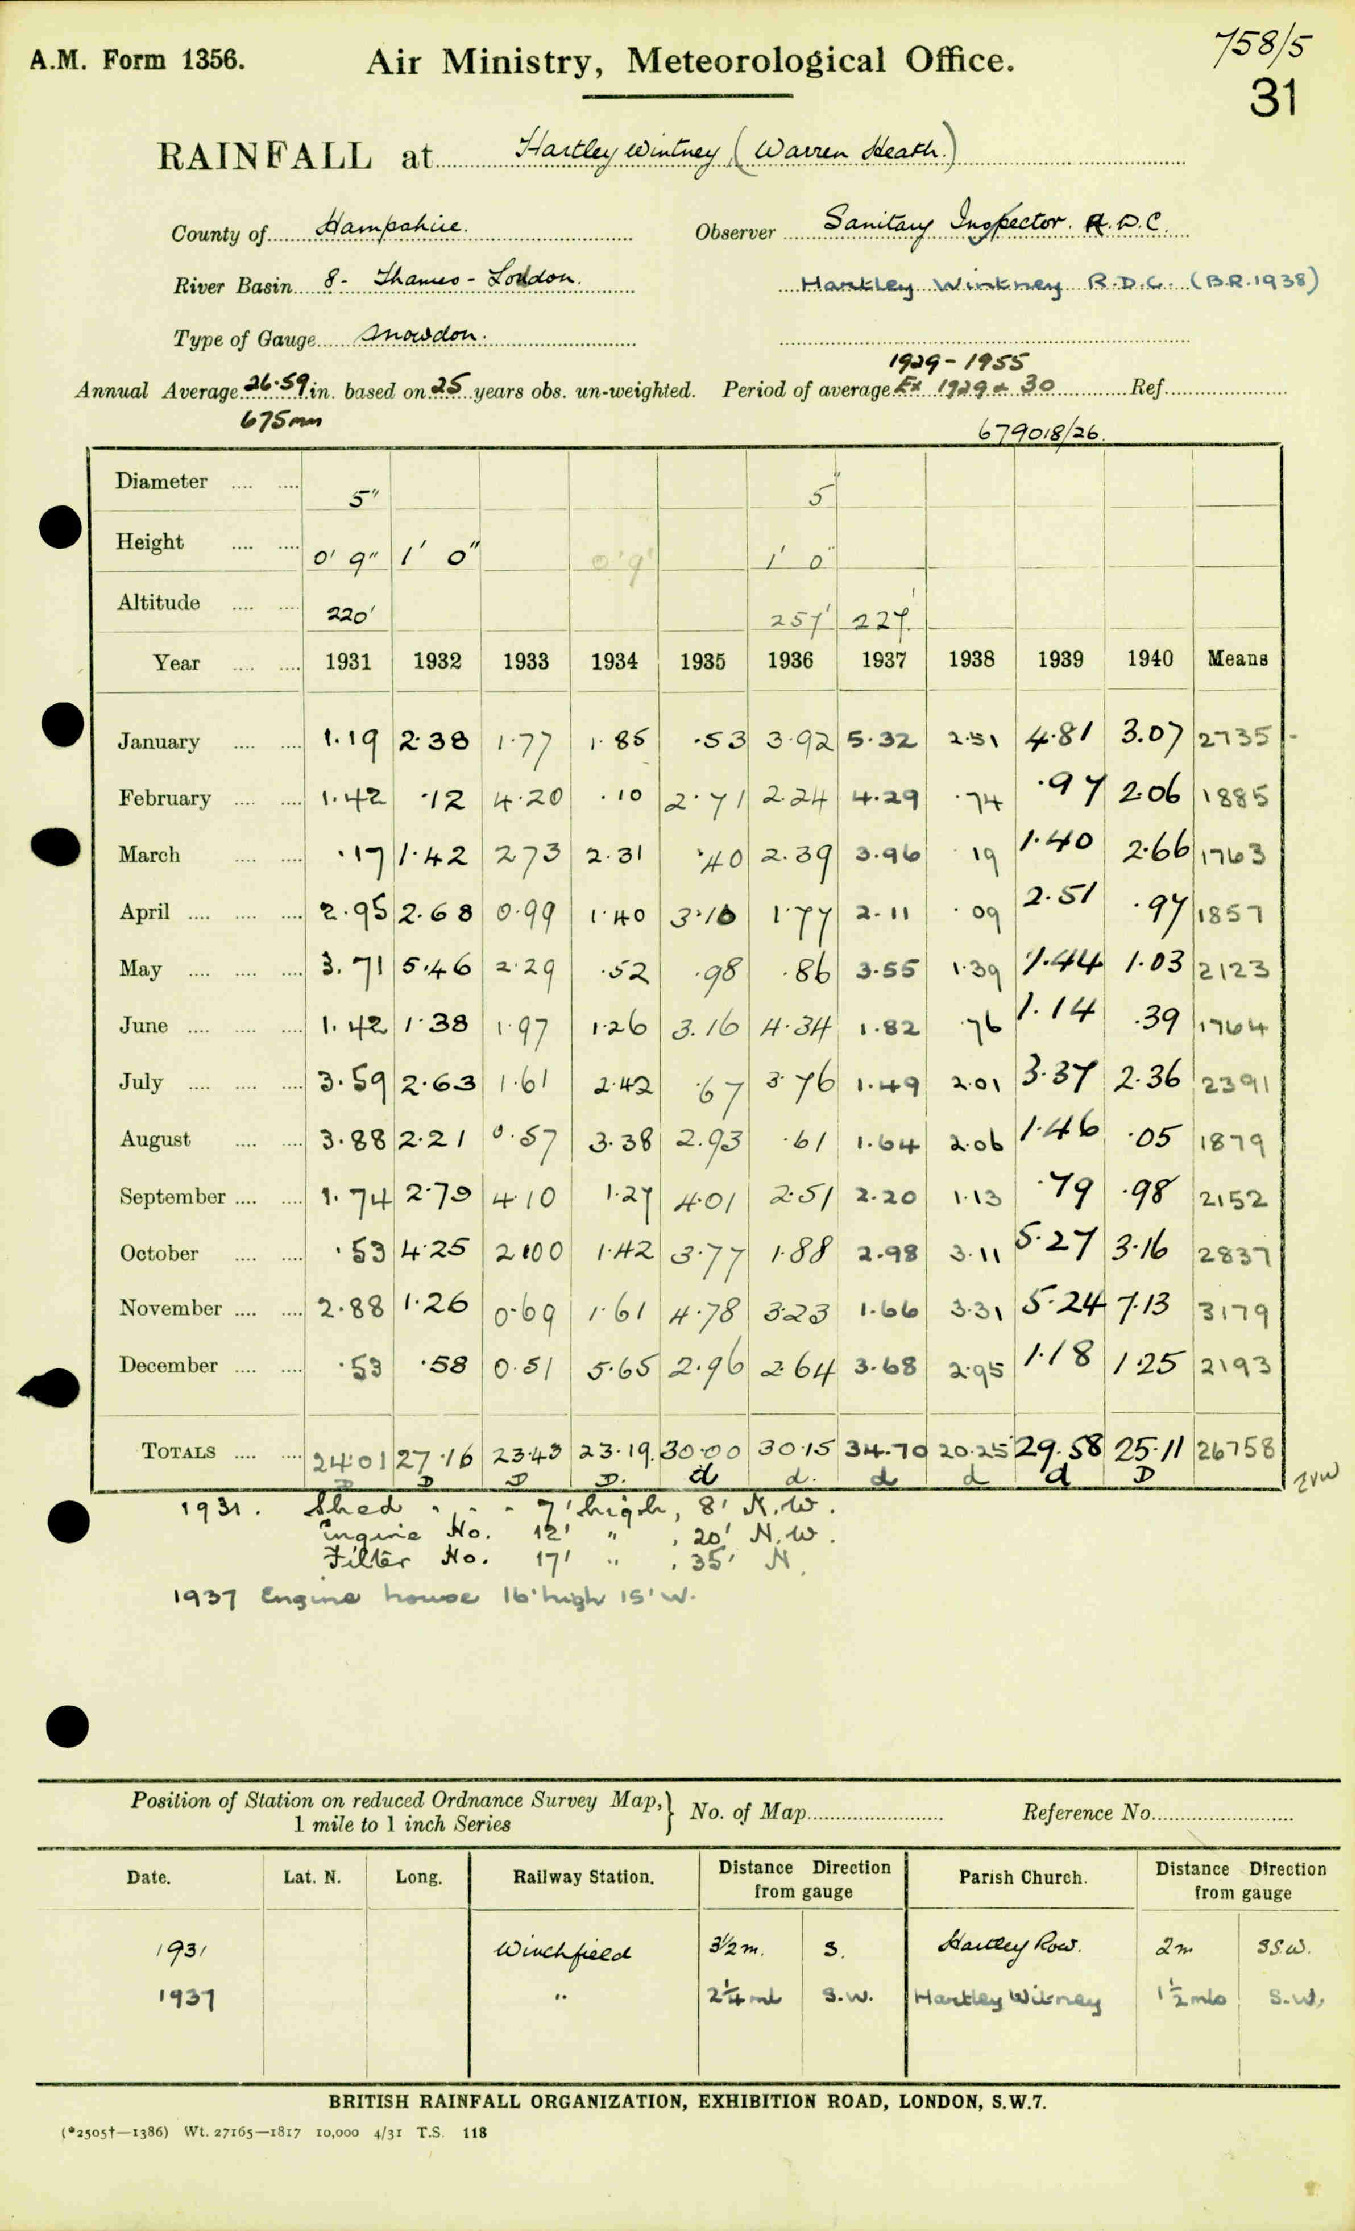 A.M. Form 1356. Air Ministry, Meteorological Office. 758/5
31
RAINFALL at Hartley Wintney (Warren Heath.)
County of Hampshire. Observer Sanitary Inspector. R.D.C.
River Basin 8 - Thames - London. Hartley Wintney R.D.C. (B.R.1938)
Type of Gauge Snowdon.
1929 - 1955
Annual Average 26.59 in. based on 25 years obs. un-weighted. Period of average Ex 1929 & 30 Ref.
675mm 679018/26.
Diameter 5" 5"
Height 0' 9" 1' 0" 0' 9" 1' 0"
Altitude 220' 257' 227'
Year 1931 1932 1933 1934 1935 1936 1937 1938 1939 1940 Means
January 1.19 2.38 1.77 1.85 .53 3.92 5.32 2.51 4.81 3.07 2735
February 1.42 .12 4.20 .10 2.71 2.24 4.29 .74 .97 2.06 1885
March .17 1.42 2.73 2.31 .40 2.39 3.96 .19 1.40 2.66 1763
April 2.95 2.68 0.99 1.40 3.10 1.77 2.11 .09 2.51 .97 1857
May 3.71 5.46 2.29 .52 .98 .86 3.55 1.39 1.44 1.03 2123
June 1.42 1.38 1.97 1.26 3.16 4.34 1.82 .76 1.14 .39 1764
July 3.59 2.63 1.61 2.42 .67 3.76 1.49 2.01 3.37 2.36 2391
August 3.88 2.21 0.57 3.38 2.93 .61 1.64 2.06 1.46 .05 1879
September 1.74 2.79 4.10 1.27 4.01 2.51 2.20 1.13 .79 .98 2152
October .53 4.25 2.00 1.42 3.77 1.88 2.98 3.11 5.27 3.16 2837
November 2.88 1.26 0.69 1.61 4.78 3.23 1.66 3.31 5.24 7.13 3179
December .53 .58 0.51 5.65 2.96 2.64 3.68 2.95 1.18 1.25 2193
TOTALS 24.01 27.16 23.43 23.19. 30.00 30.15 34.70 20.25 29.58 25.11 26758
D D D D. d d. d d d D
1931. Shed - - - 7' high, 8' N.W.
Engine Ho. 12' " , 20' N.W.
Filter Ho. 17' " , 35' N.
1937 Engine house 16' high 15' W.
Position of Station on reduced Ordnance Survey Map, 1 mile to 1 inch Series } No. of Map Reference No.
Date. Lat. N. Long. Railway Station. Distance Direction from gauge Parish Church. Distance Direction from gauge
1931 Winchfield 3½m. S. Hartley Row. 2m SSW.
1937 " 2¼ml S.W. Hartley Witney 1½mls S.W.
BRITISH RAINFALL ORGANIZATION, EXHIBITION ROAD, LONDON, S.W.7.
(*2505†—1386) Wt. 27165—1817 10,000 4/31 T.S. 118